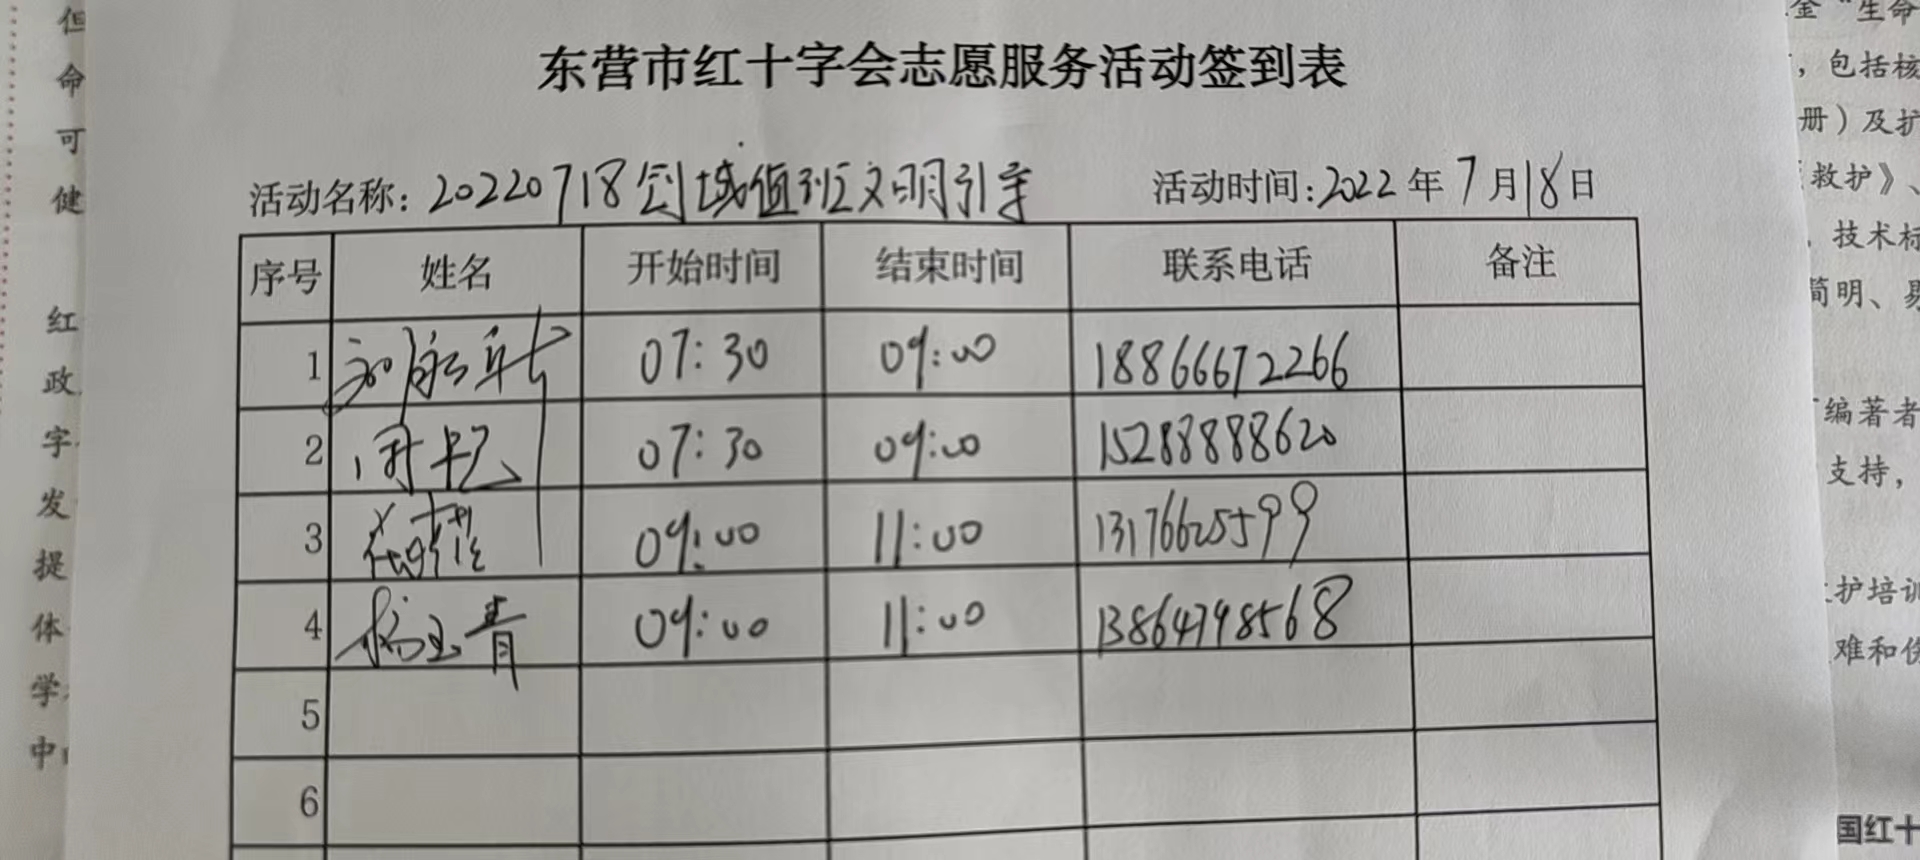 东营市红十字会志愿服务活动签到表
活动名称: 20220718创城值班文明引导 活动时间: 2022 年 7 月 18 日
序号 姓名 开始时间 结束时间 联系电话 备注
1 07:30 09:00 18866672266
2 07:30 09:00 15288888620
3 09:00 11:00 13176625599
4 杨玉青 09:00 11:00 13864798568
5
6
但
命
可
健
红
政
字
发
提
体
学
中
金“生命
,包括核
册)及扩
救护》、
技术标
简明、易
编著者
支持,
护培训
难和伤
国红十